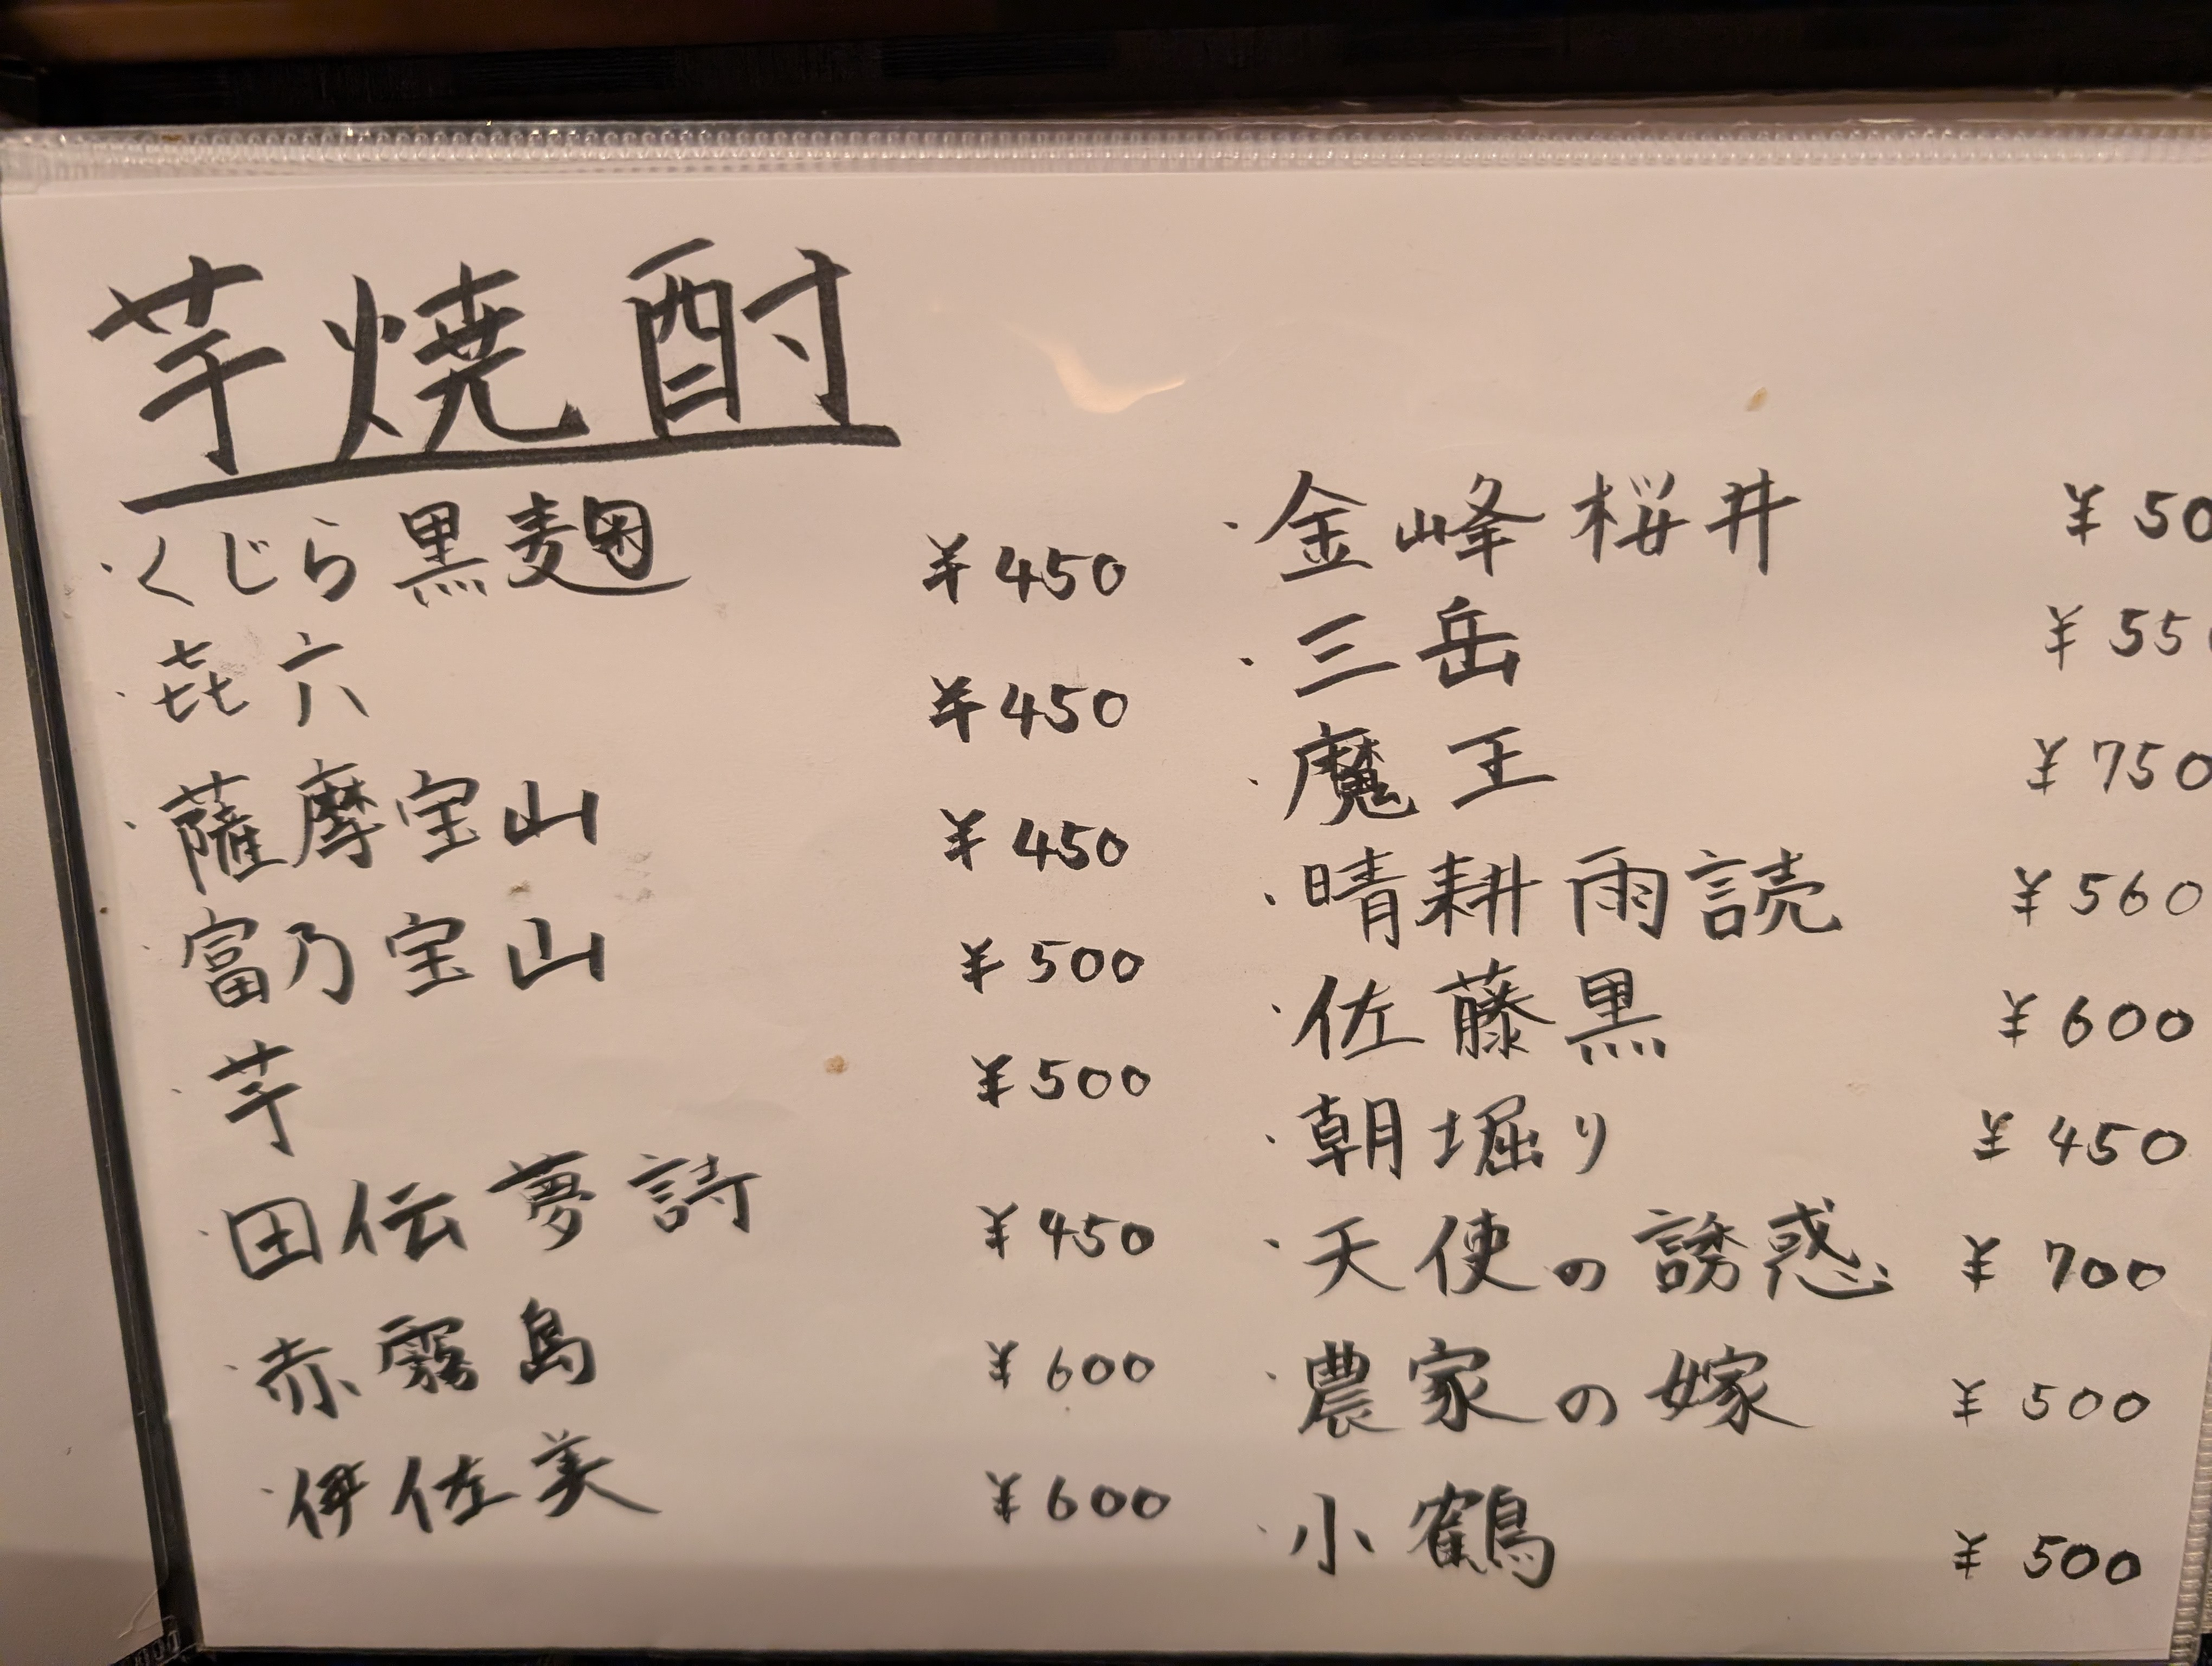 芋焼酎
・くじら黒麹 ¥450
・㐂六 ¥450
・薩摩宝山 ¥450
・富乃宝山 ¥500
・芋 ¥500
・田伝夢詩 ¥450
・赤霧島 ¥600
・伊佐美 ¥600
・金峰桜井 ¥50
・三岳 ¥55
・魔王 ¥750
・晴耕雨読 ¥560
・佐藤黒 ¥600
・朝堀り ¥450
・天使の誘惑 ¥700
・農家の嫁 ¥500
・小鶴 ¥500